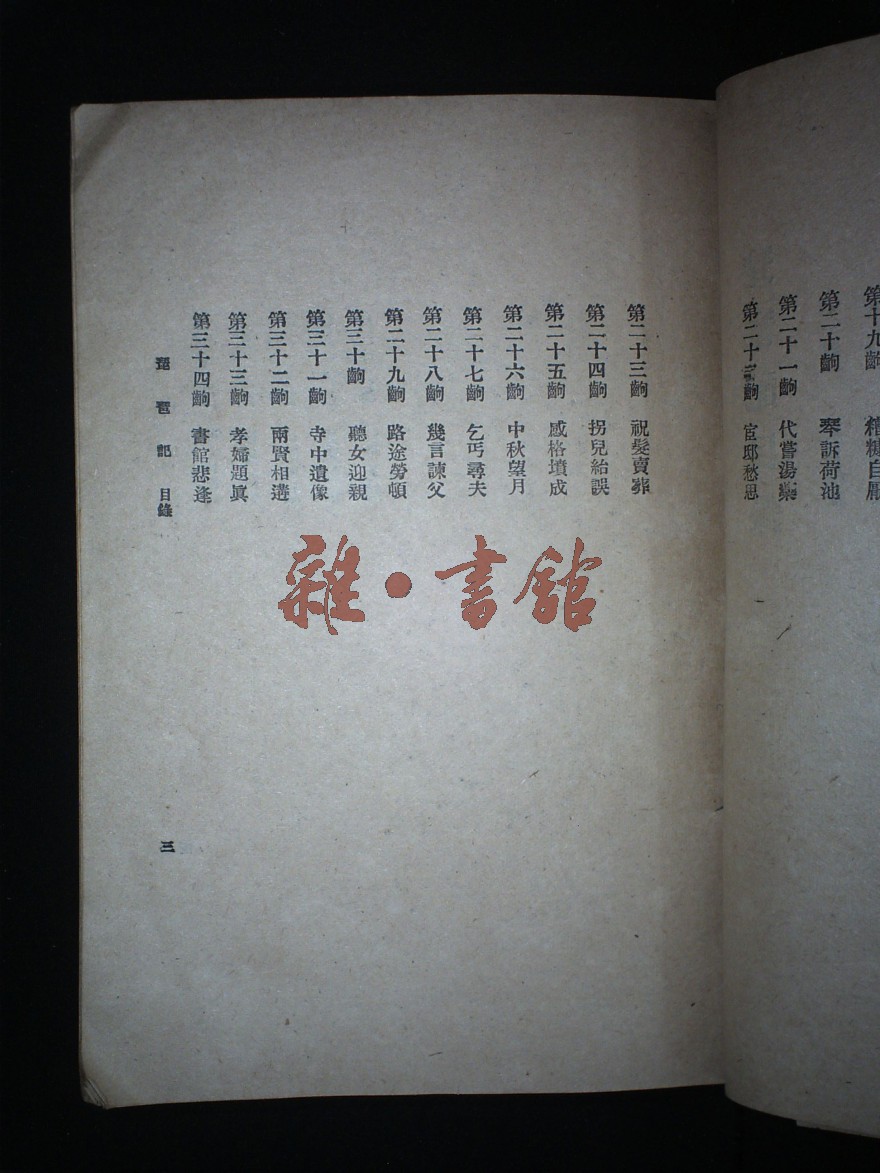 第十九齣 糟糠自厭
第二十齣 琴訴荷池
第二十一齣 代嘗湯藥
第二十二齣 宦邸愁思
第二十三齣 祝髮賣葬
第二十四齣 拐兒紿誤
第二十五齣 感格墳成
第二十六齣 中秋望月
第二十七齣 乞丐尋夫
第二十八齣 幾言諫父
第二十九齣 路途勞頓
第三十齣 聽女迎親
第三十一齣 寺中遺像
第三十二齣 兩賢相遘
第三十三齣 孝婦題眞
第三十四齣 書館悲逢
琵琶記 目錄
三
雜·書館